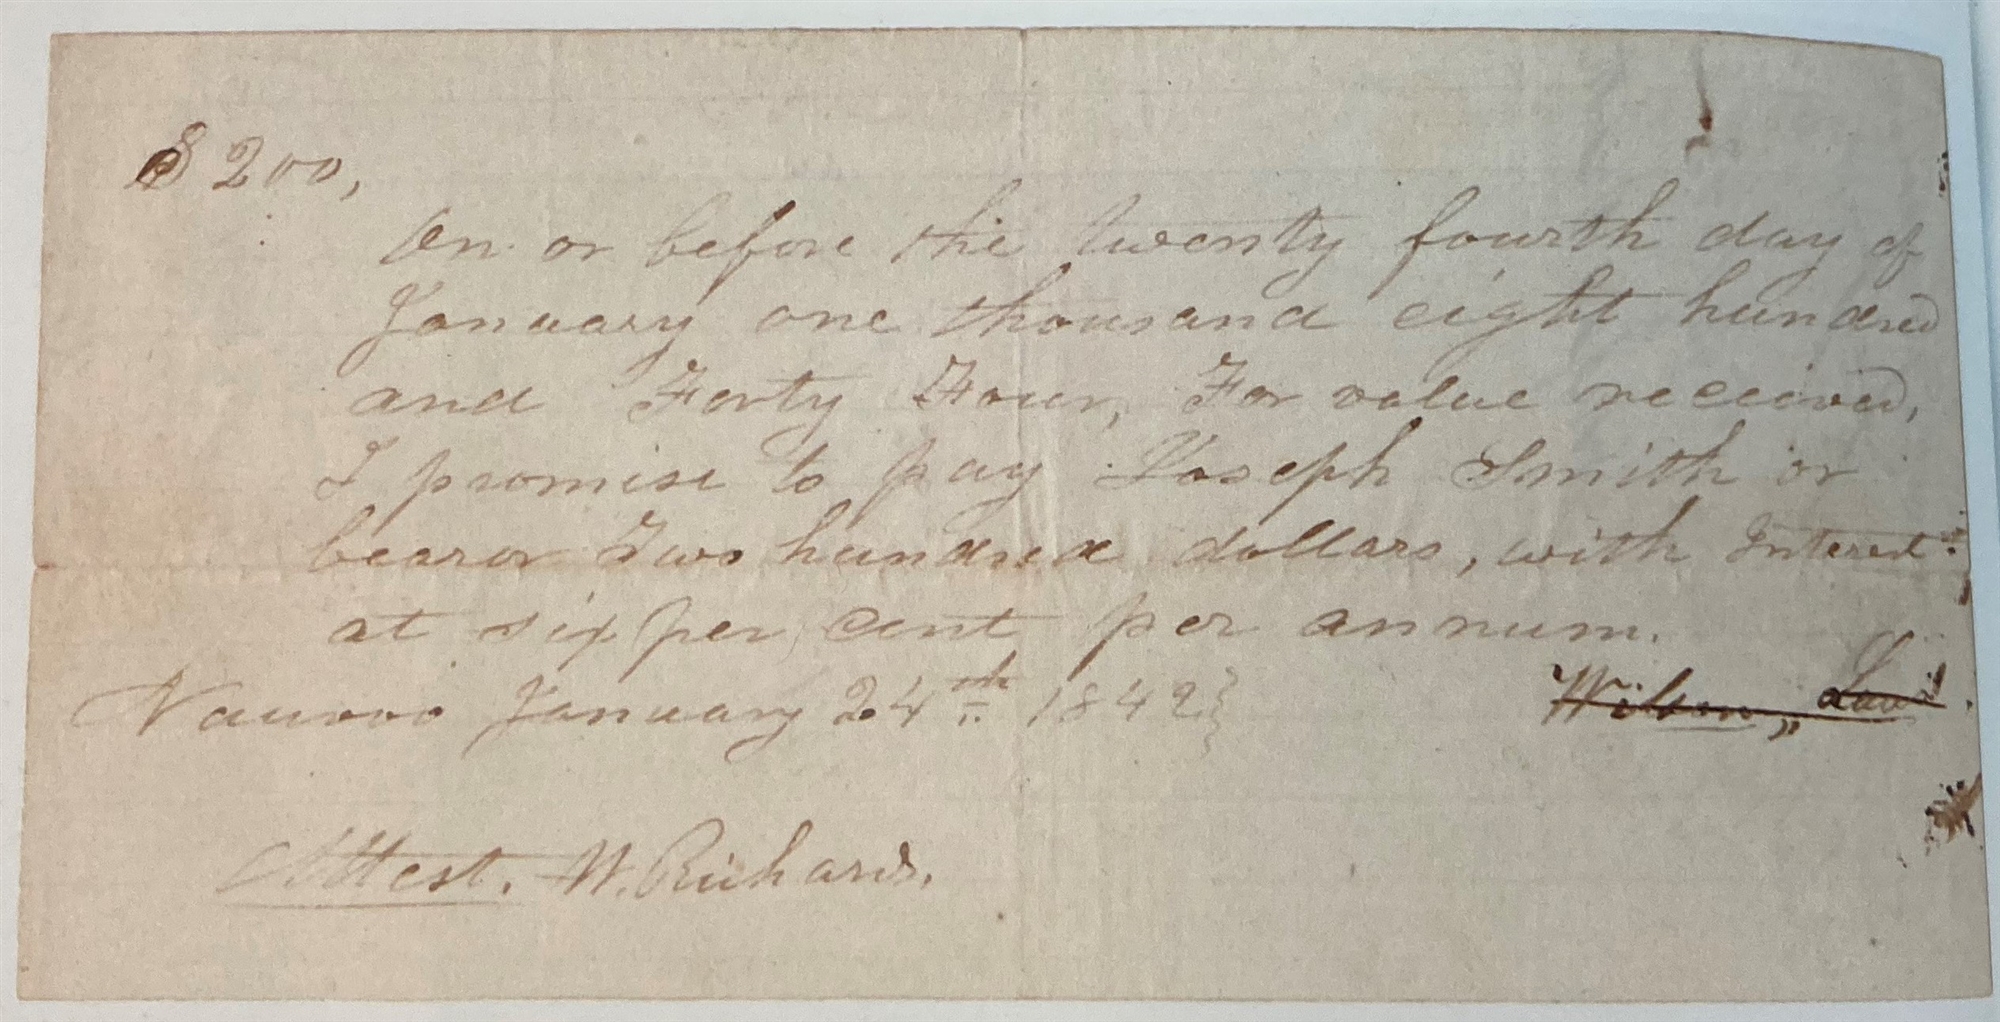 $200,
On or before the twenty fourth day of
January one thousand eight hundred
and Forty Four, For value received,
I promise to pay Joseph Smith or
bearor Two hundred dollars, with Interest
at six per cent per annum.
Nauvoo January 24th 1842} Wilson Law
Attest. W. Richards.